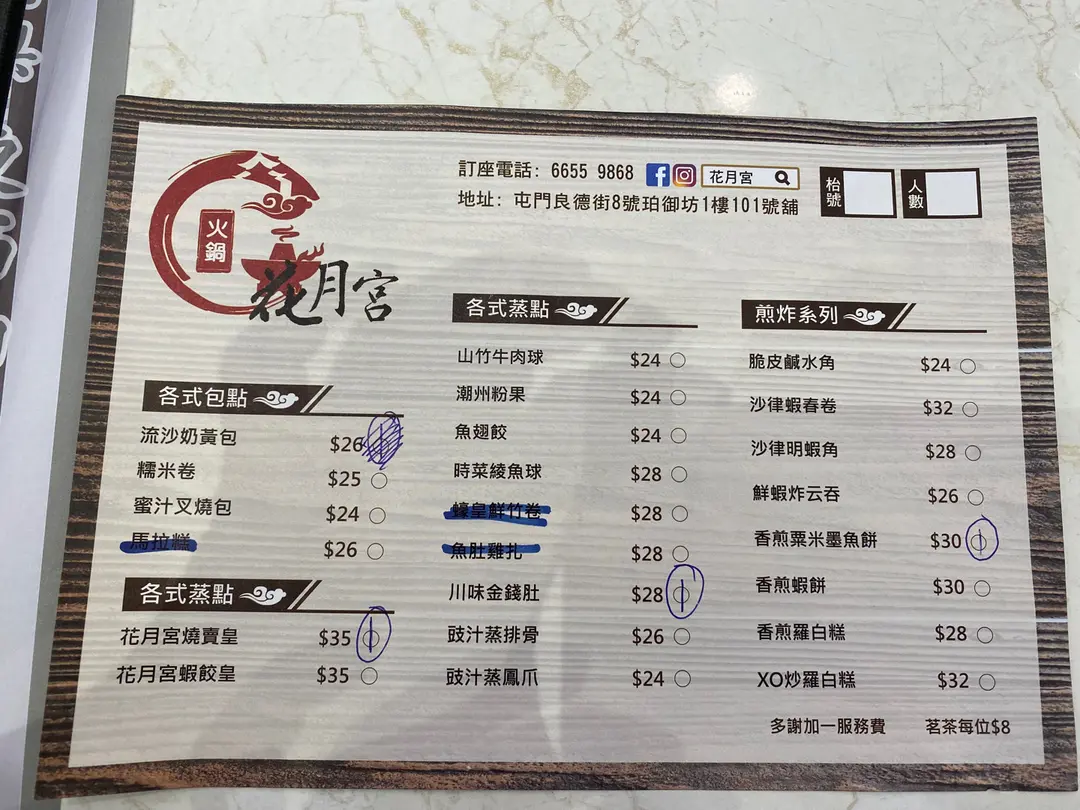 火鍋
花月宮
訂座電話: 6655 9868
花月宮
地址: 屯門良德街8號珀御坊1樓101號舖
枱號
人數
各式包點
流沙奶黃包 $26
糯米卷 $25
蜜汁叉燒包 $24
馬拉糕 $26
各式蒸點
花月宮燒賣皇 $35
花月宮蝦餃皇 $35
各式蒸點
山竹牛肉球 $24
潮州粉果 $24
魚翅餃 $24
時菜綾魚球 $28
蠔皇鮮竹卷 $28
魚肚雞扎 $28
川味金錢肚 $28
豉汁蒸排骨 $26
豉汁蒸鳳爪 $24
煎炸系列
脆皮鹹水角 $24
沙律蝦春卷 $32
沙律明蝦角 $28
鮮蝦炸云吞 $26
香煎粟米墨魚餅 $30
香煎蝦餅 $30
香煎羅白糕 $28
XO炒羅白糕 $32
多謝加一服務費 茗茶每位$8